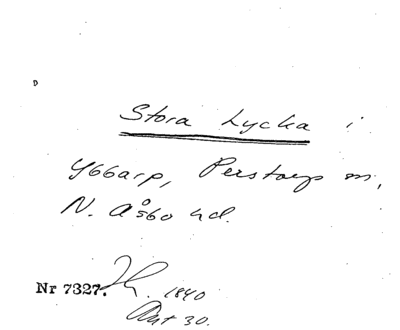 D
Stora Lycka i
Ybbarp, Perstorps m,
N. Åsbo hd.
Nr 7327. 1840
Okt 30.